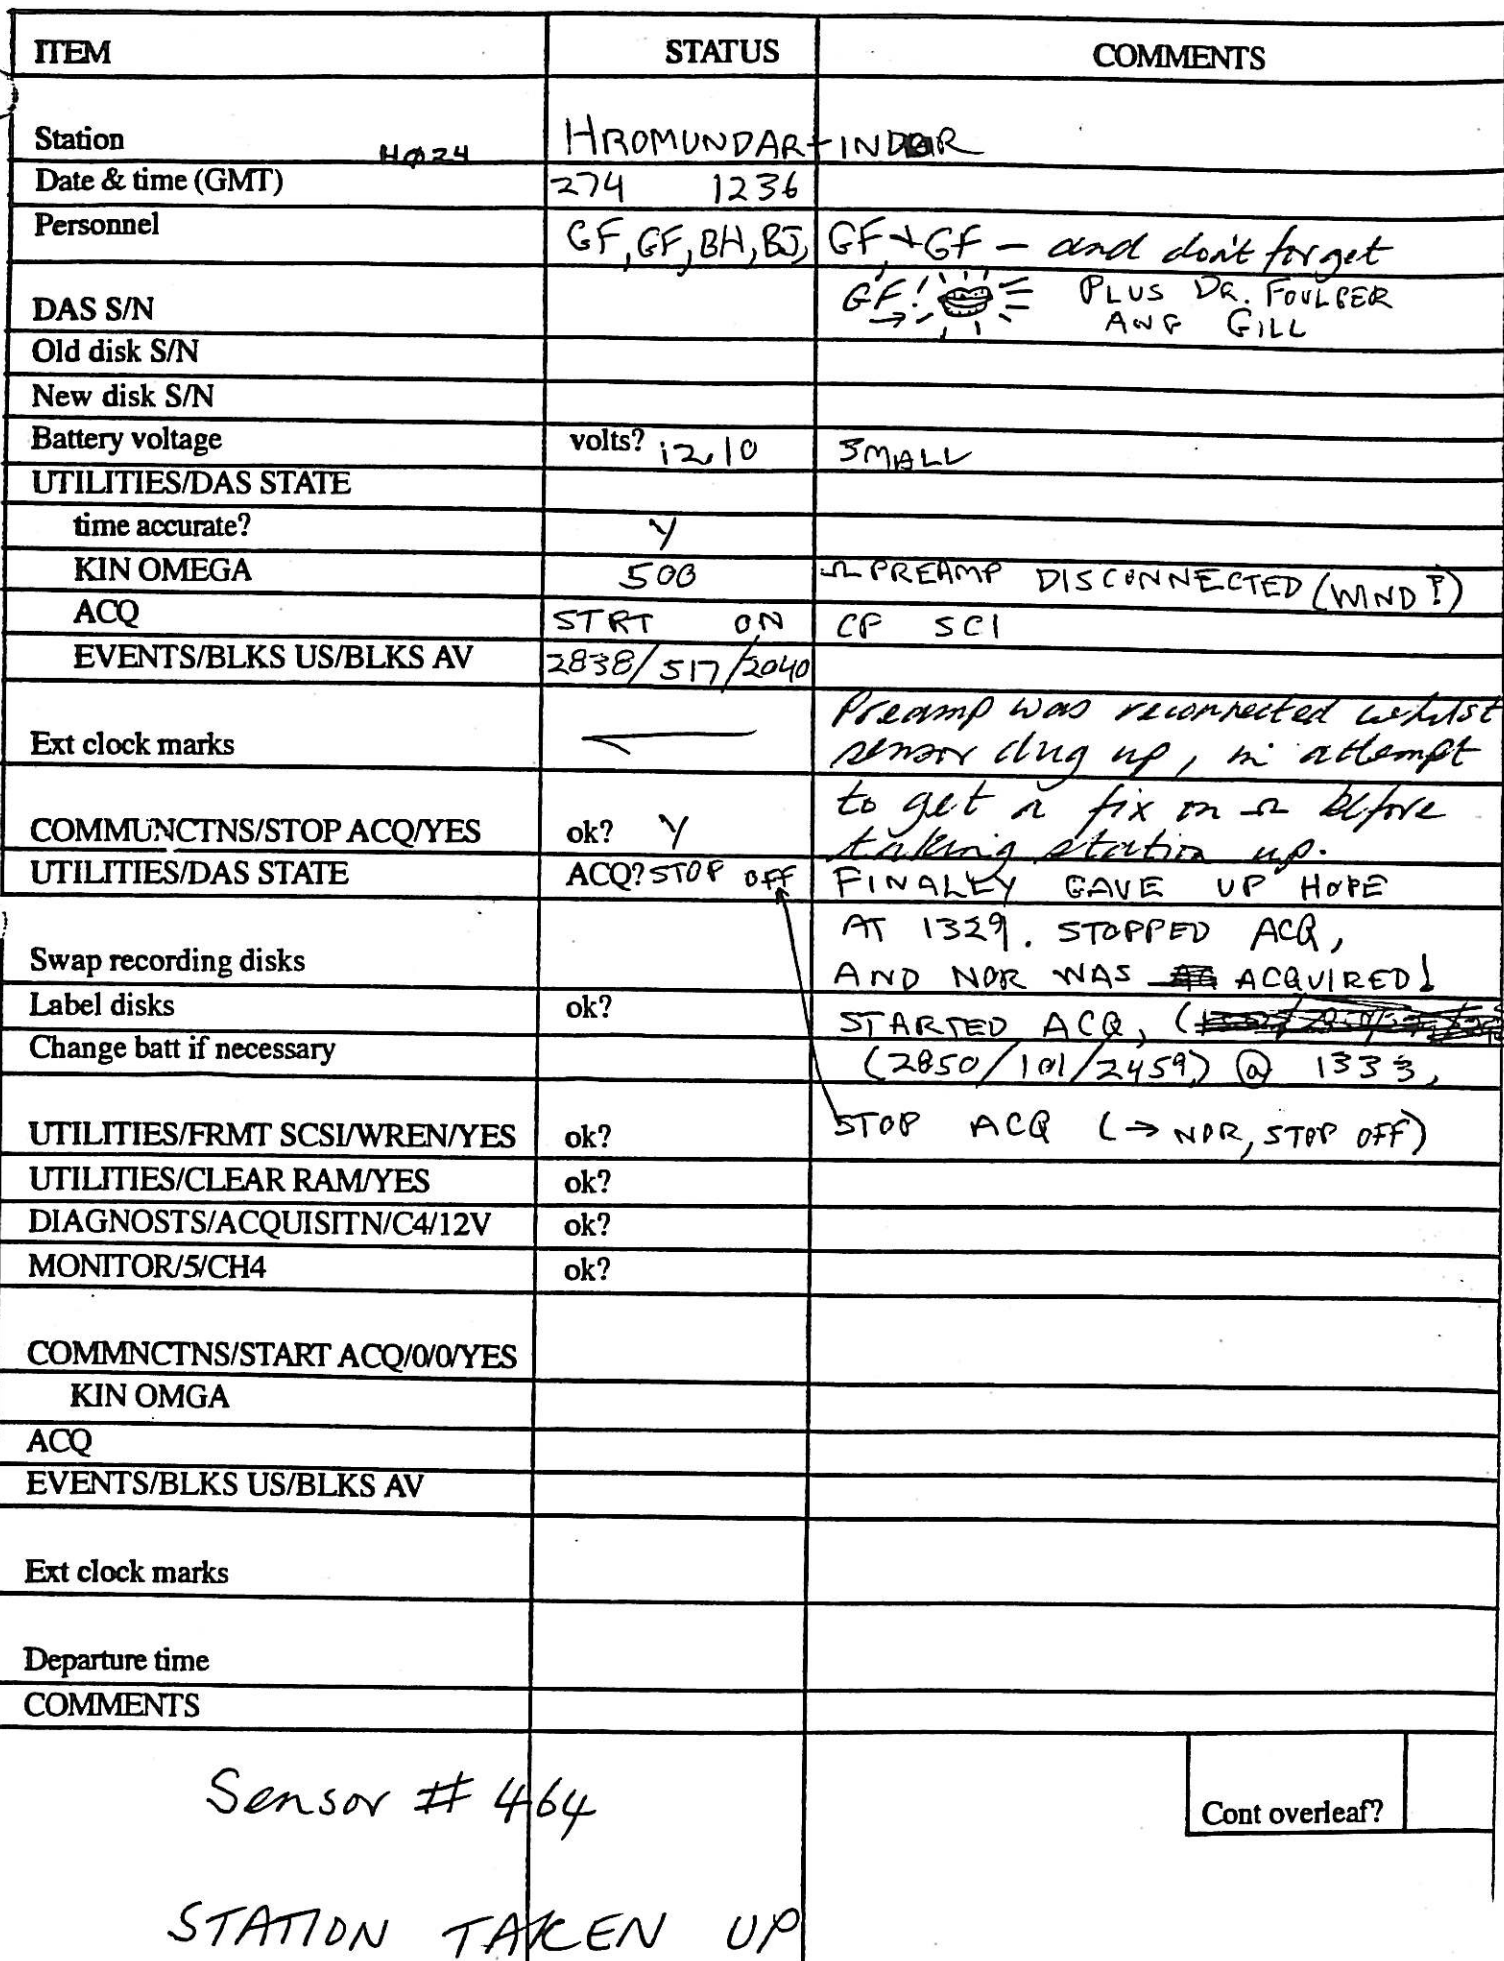 ITEM STATUS COMMENTS
Station HØ24 HROMUNDAR-INDAR
Date & time (GMT) 274 1236
Personnel GF, GF, BH, BJ, GF + GF – and don't forget
GF! PLUS DR. FOULGER
DAS S/N AND GILL
Old disk S/N
New disk S/N
Battery voltage volts? 12.10 SMALL
UTILITIES/DAS STATE
time accurate? Y
KIN OMEGA 500 Ω PREAMP DISCONNECTED (WIND?)
ACQ STRT ON CP SCI
EVENTS/BLKS US/BLKS AV 2838/517/2040
Preamp was reconnected whilst
Ext clock marks sensor dug up, in attempt
to get a fix on Ω before
COMMUNCTNS/STOP ACQ/YES ok? Y taking station up.
UTILITIES/DAS STATE ACQ? STOP OFF FINALLY GAVE UP HOPE
AT 1329. STOPPED ACQ,
Swap recording disks AND NOR WAS ACQUIRED!
Label disks ok? STARTED ACQ, (
Change batt if necessary (2850/101/2459) @ 1333,
UTILITIES/FRMT SCSI/WREN/YES ok? STOP ACQ (→ NOR, STOP OFF)
UTILITIES/CLEAR RAM/YES ok?
DIAGNOSTS/ACQUISITN/C4/12V ok?
MONITOR/5/CH4 ok?
COMMNCTNS/START ACQ/0/0/YES
KIN OMGA
ACQ
EVENTS/BLKS US/BLKS AV
Ext clock marks
Departure time
COMMENTS
Sensor # 464
Cont overleaf?
STATION TAKEN UP